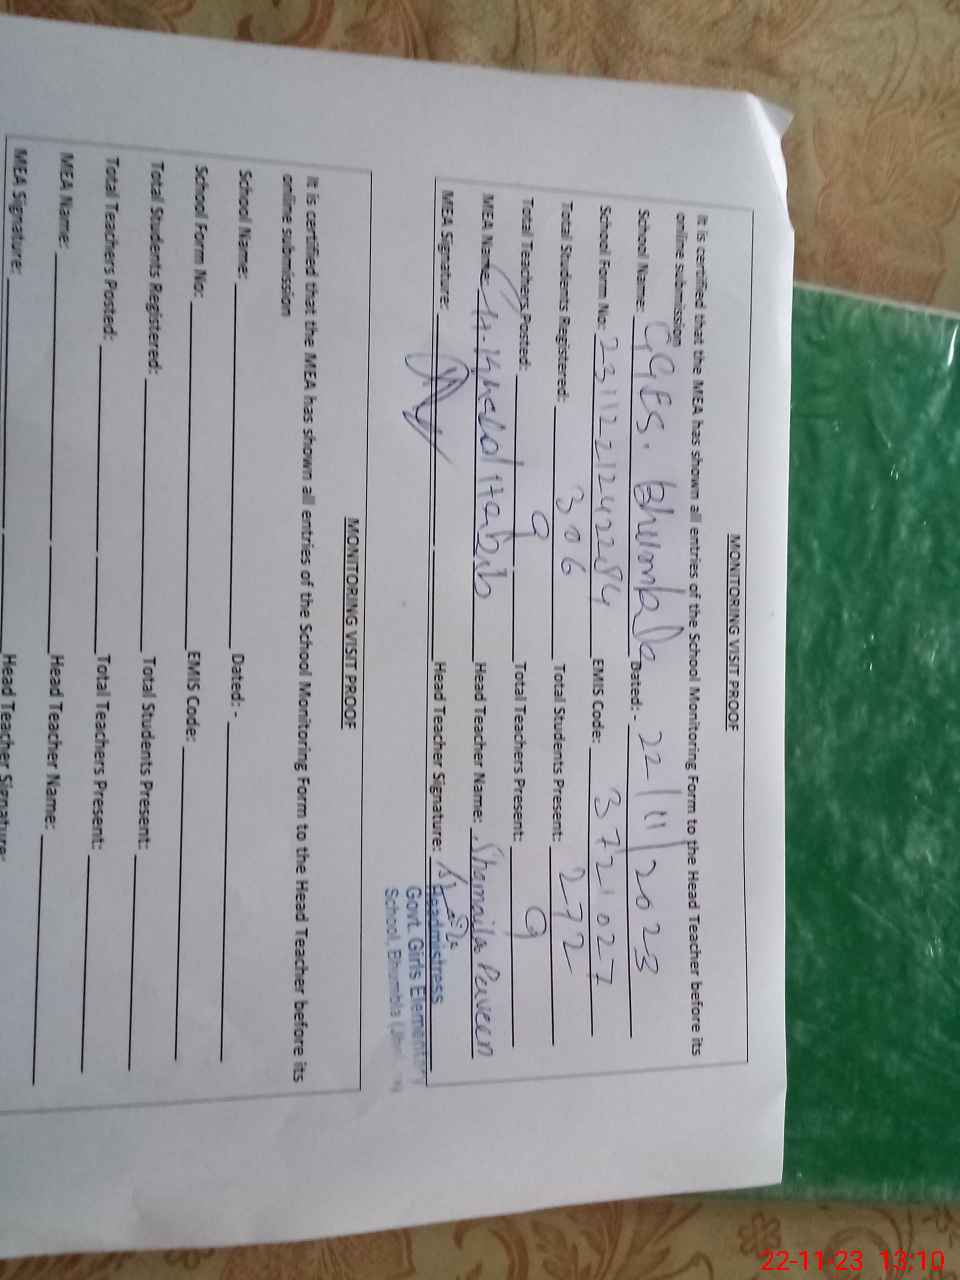 MONITORING VISIT PROOF
It is certified that the MEA has shown all entries of the School Monitoring Form to the Head Teacher before its
online submission
School Name: GGES. Dated:- 22/11/2023
School Form No: EMIS Code: 37210227
Total Students Registered: 306 Total Students Present: 272
Total Teachers Posted: 9 Total Teachers Present: 9
MEA Name: Habib Head Teacher Name: Shamaila Parveen
MEA Signature: Head Teacher Signature:
Headmistress
Govt. Girls Elementary
School, Bhumbla
MONITORING VISIT PROOF
It is certified that the MEA has shown all entries of the School Monitoring Form to the Head Teacher before its
online submission
School Name: Dated:-
School Form No: EMIS Code:
Total Students Registered: Total Students Present:
Total Teachers Posted: Total Teachers Present:
MEA Name: Head Teacher Name:
MEA Signature: Head Teacher Signature:
22-11-23 13:10